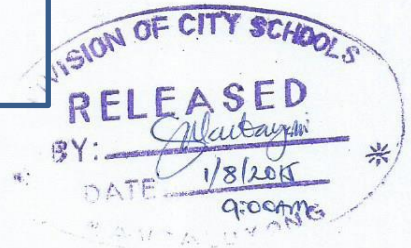 VISION OF CITY SCHOOLS
RELEASED
BY:
DATE 1/8/2015
9:00AM